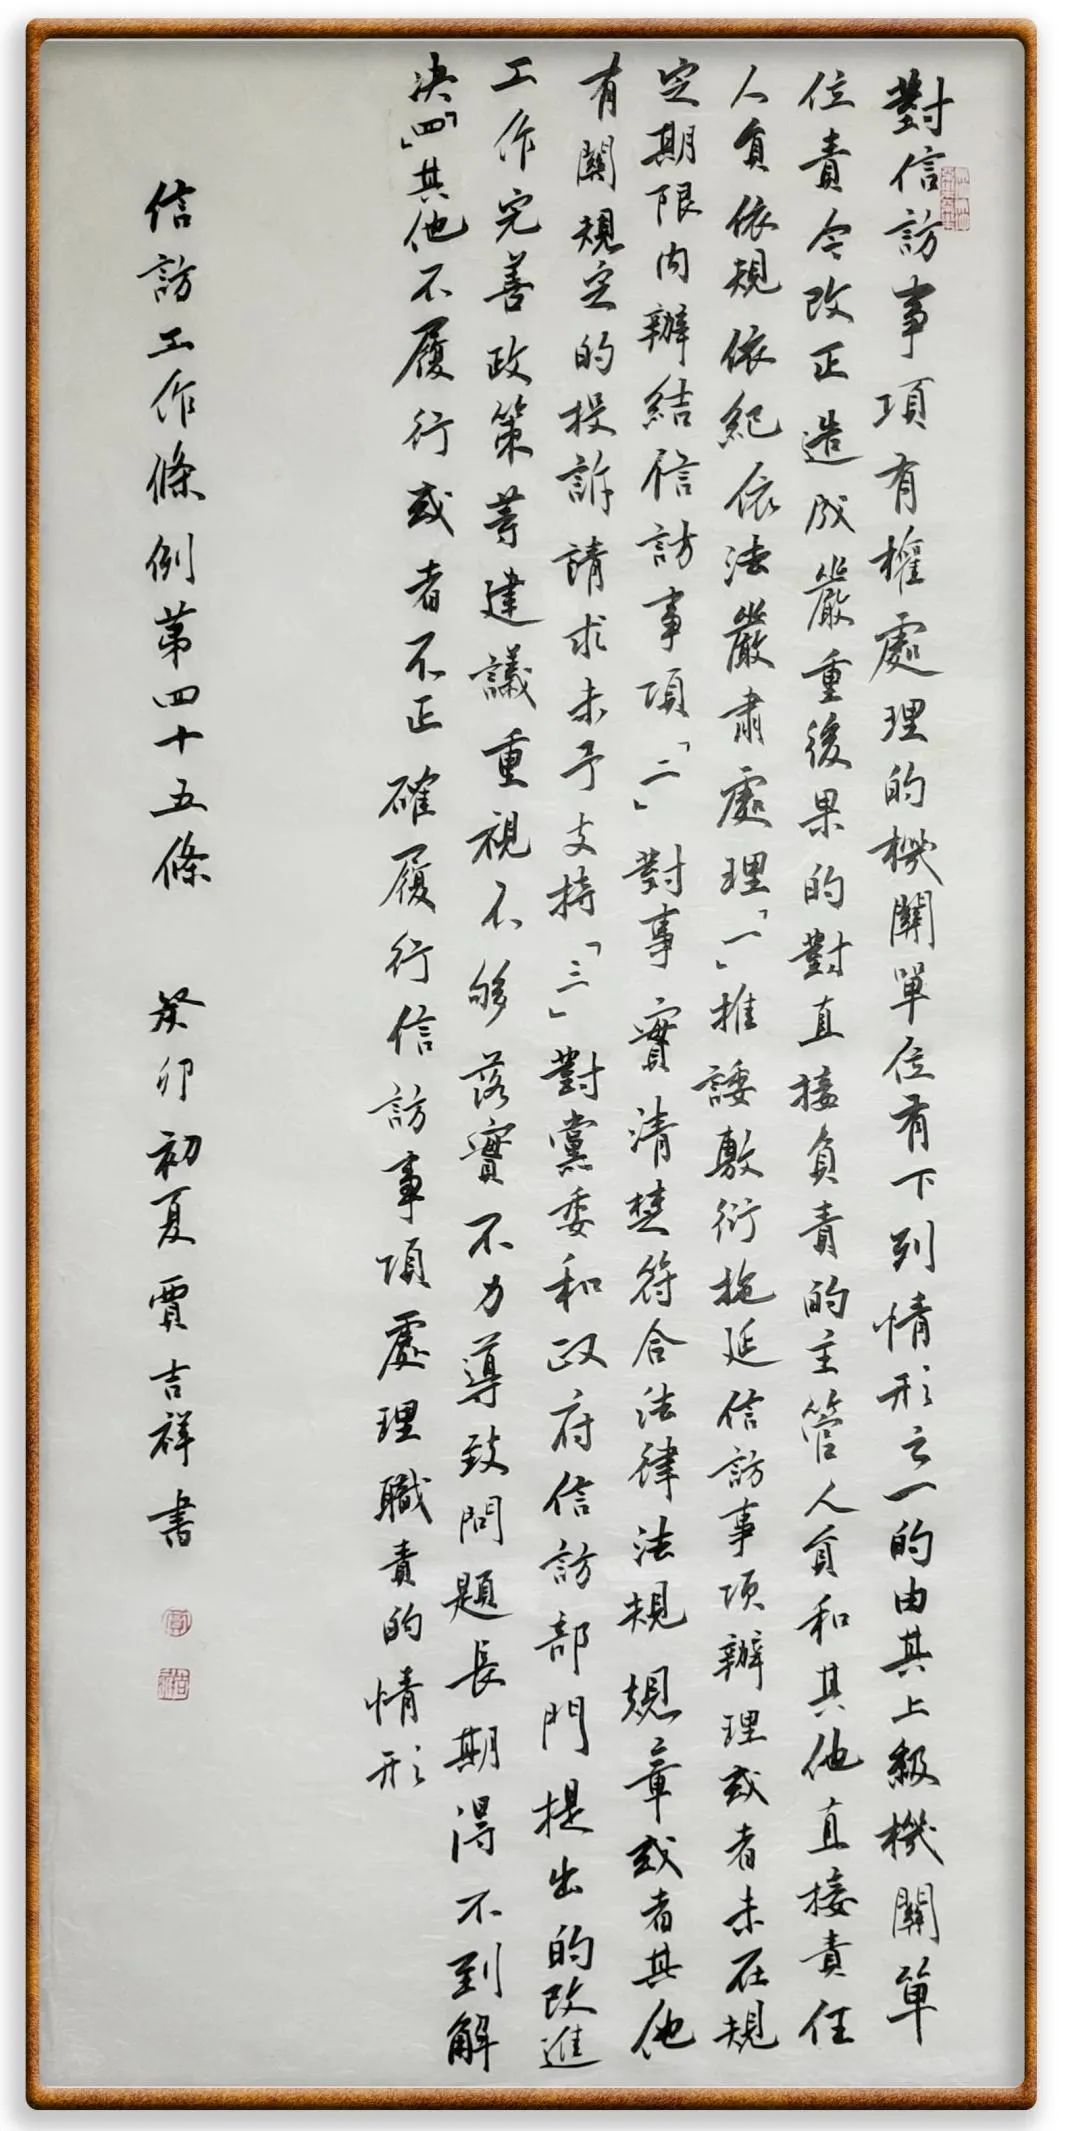 對信訪事項有權處理的機關單位有下列情形之一的由其上級機關單
位責令改正造成嚴重後果的對直接負責的主管人員和其他直接責任
人員依規依紀依法嚴肅處理「一」推諉敷衍拖延信訪事項辦理或者未在規
定期限内辦結信訪事項「二」對事實清楚符合法律法規規章或者其他
有關規定的投訴請求未予支持「三」對黨委和政府信訪部門提出的改進
工作完善政策等建議重視不够落實不力導致問題長期得不到解
决「四」其他不履行或者不正確履行信訪事項處理職責的情形
信訪工作條例第四十五條 癸卯初夏賈吉祥書